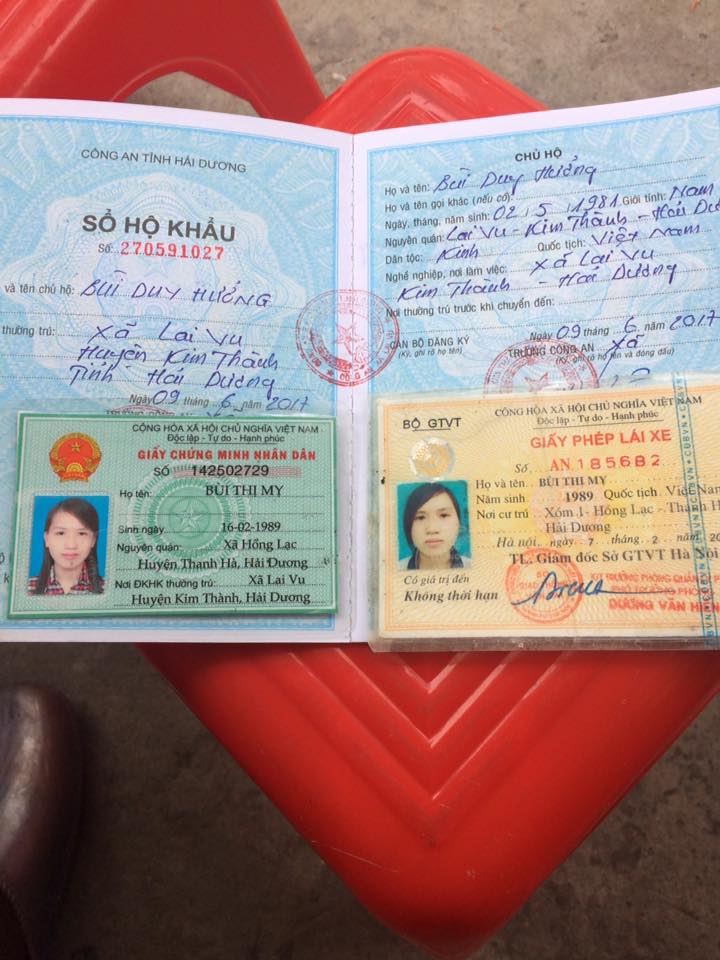 CÔNG AN TỈNH HẢI DƯƠNG
SỔ HỘ KHẨU
Số: 270591027
và tên chủ hộ: BÙI DUY HƯỞNG
thường trú: Xã Lai Vu
Huyện Kim Thành
Tỉnh Hải Dương
Ngày 09 tháng 6 năm 2017
CHỦ HỘ
Họ và tên: Bùi Duy Hưởng
Họ và tên gọi khác (nếu có):
Ngày, tháng, năm sinh: 02, 5, 1981 Giới tính: Nam
Nguyên quán: Lai Vu - Kim Thành - Hải
Dân tộc: Kinh Quốc tịch: Việt Nam
Nghề nghiệp, nơi làm việc: Xã Lai Vu
Kim Thành - Hải Dương
Nơi thường trú trước khi chuyển đến:
Ngày 09 tháng 6 năm 2017
CÁN BỘ ĐĂNG KÝ TRƯỞNG CÔNG AN Xã
(Ký, ghi rõ họ tên) (Ký, ghi rõ họ tên và đóng dấu)
CỘNG HÒA XÃ HỘI CHỦ NGHĨA VIỆT NAM
Độc lập - Tự do - Hạnh phúc
GIẤY CHỨNG MINH NHÂN DÂN
SỐ 142502729
Họ tên: BÙI THỊ MY
Sinh ngày: 16-02-1989
Nguyên quán: Xã Hồng Lạc
Huyện Thanh Hà, Hải Dương
Nơi ĐKHK thường trú: Xã Lai Vu
Huyện Kim Thành, Hải Dương
BỘ GTVT
CỘNG HÒA XÃ HỘI CHỦ NGHĨA VIỆT NAM
Độc lập - Tự do - Hạnh phúc
GIẤY PHÉP LÁI XE
Số AN 185682
Họ và tên BÙI THỊ MY
Năm sinh 1989 Quốc tịch Việt
Nơi cư trú Xóm 1- Hồng Lạc -
Hải Dương
Hà nội, ngày 7 tháng 2 năm
TL. Giám đốc Sở GTVT Hà
Có giá trị đến
Không thời hạn
DƯƠNG VĂN